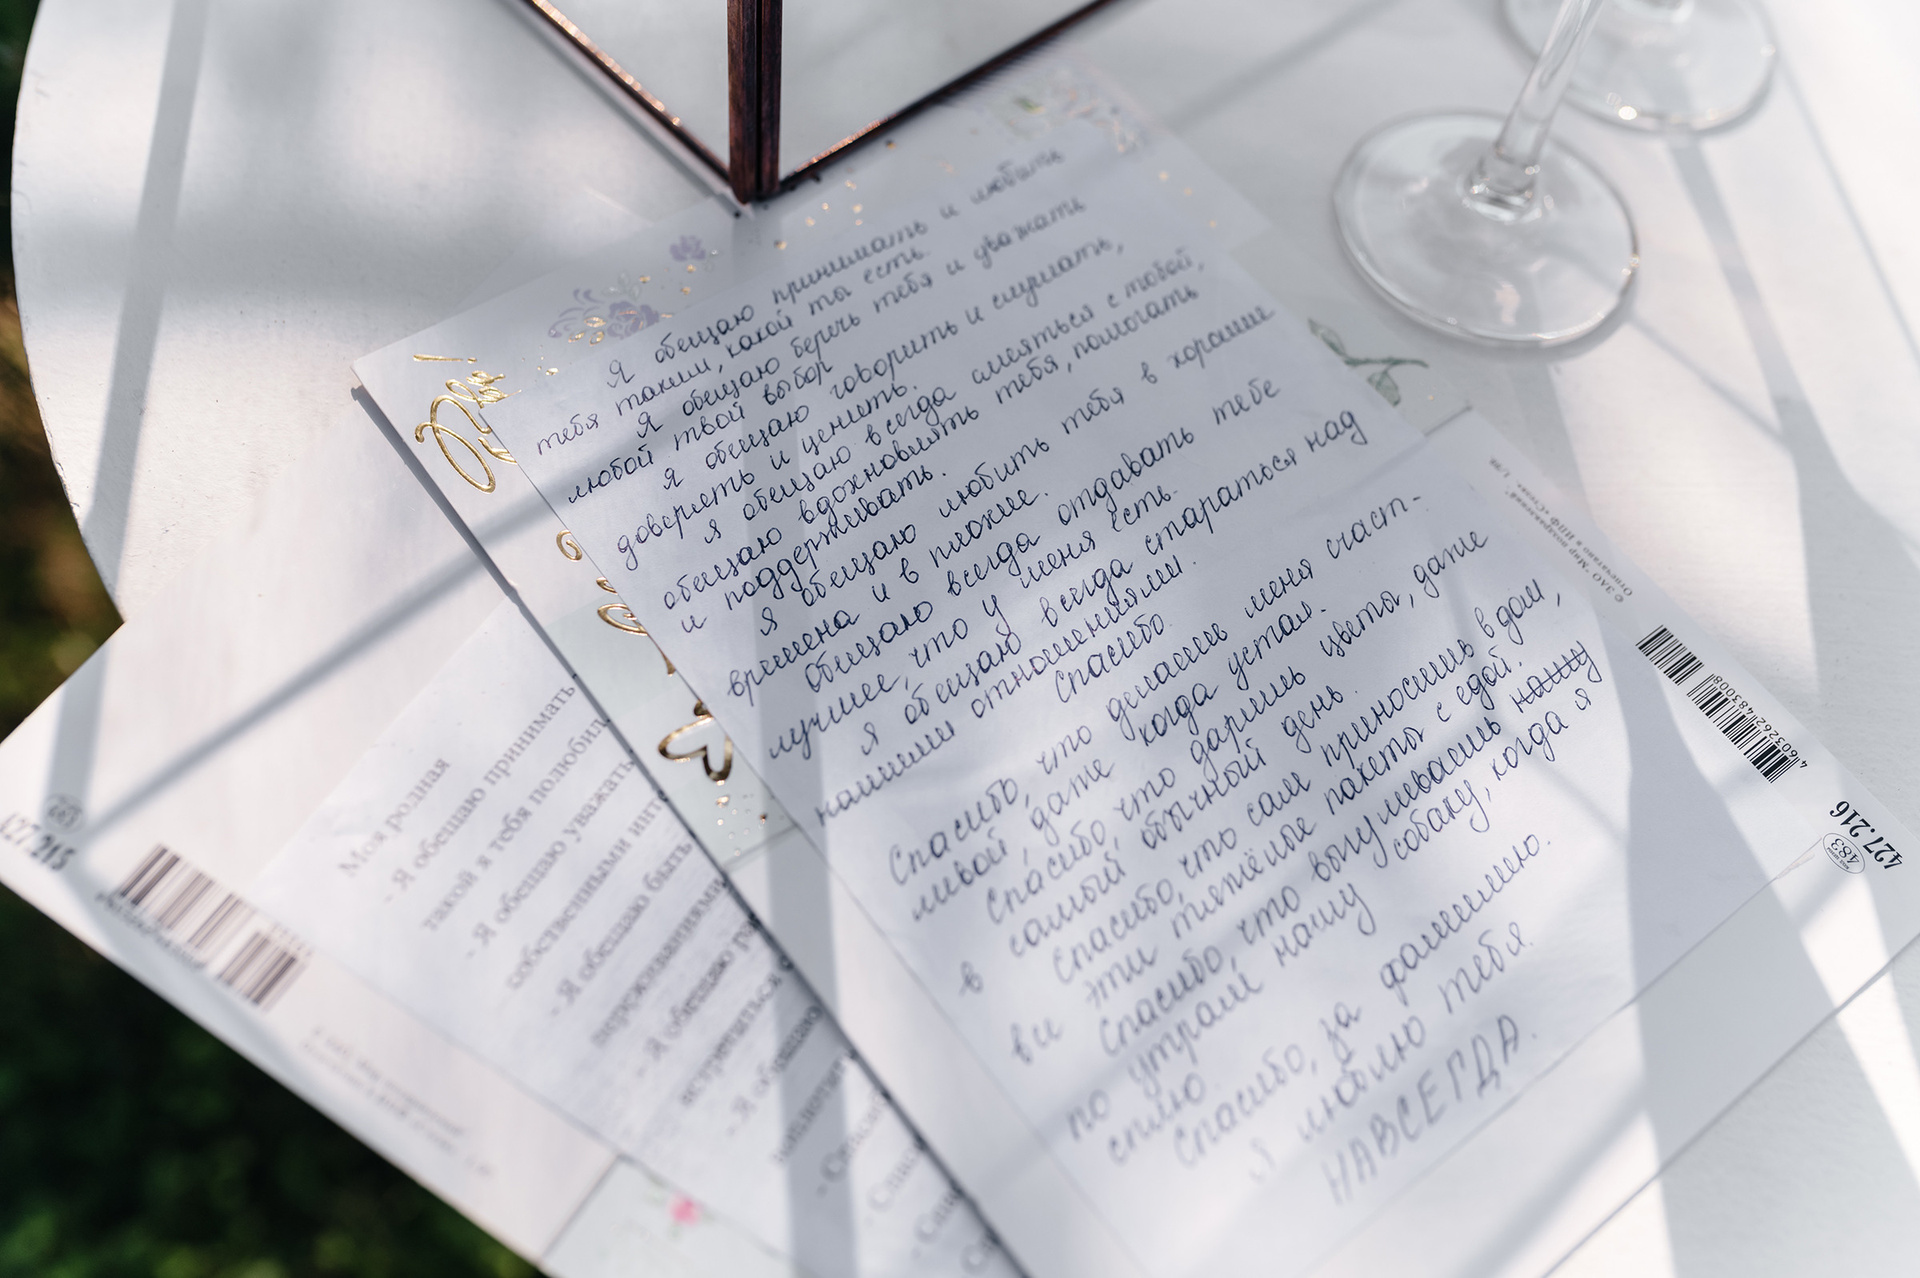 Я обещаю принимать и любить
тебя таким, какой ты есть.
Я обещаю беречь тебя и уважать
любой твой выбор
Я обещаю говорить и слушать,
доверять и ценить.
Я обещаю всегда смеяться с тобой,
обещаю вдохновлять тебя, помогать
и поддерживать.
Я обещаю любить тебя в хорошие
времена и в плохие.
Обещаю всегда отдавать тебе
лучшее, что у меня есть.
Я обещаю всегда стараться над
нашими отношениями.
Спасибо.
Спасибо, что делаешь меня счаст-
ливой, даже когда устал.
Спасибо, что даришь цветы, даже
в самый обычный день.
Спасибо, что сам приносишь в дом,
все эти тяжёлые пакеты с едой.
Спасибо, что выгуливаешь нашу
по утрам нашу собаку, когда я
сплю.
Спасибо, за фамилию.
Я люблю тебя.
НАВСЕГДА.
© ЗАО "Мир поздравлений"
4 603262 483008
483
427.216
Моя родная
- Я обещаю принимать
такой я тебя полюбил
- Я обещаю уважать
собственными инте
- Я обещаю быть
переживаниями
- Я обещаю
встретиться
- Я обещаю
427.215